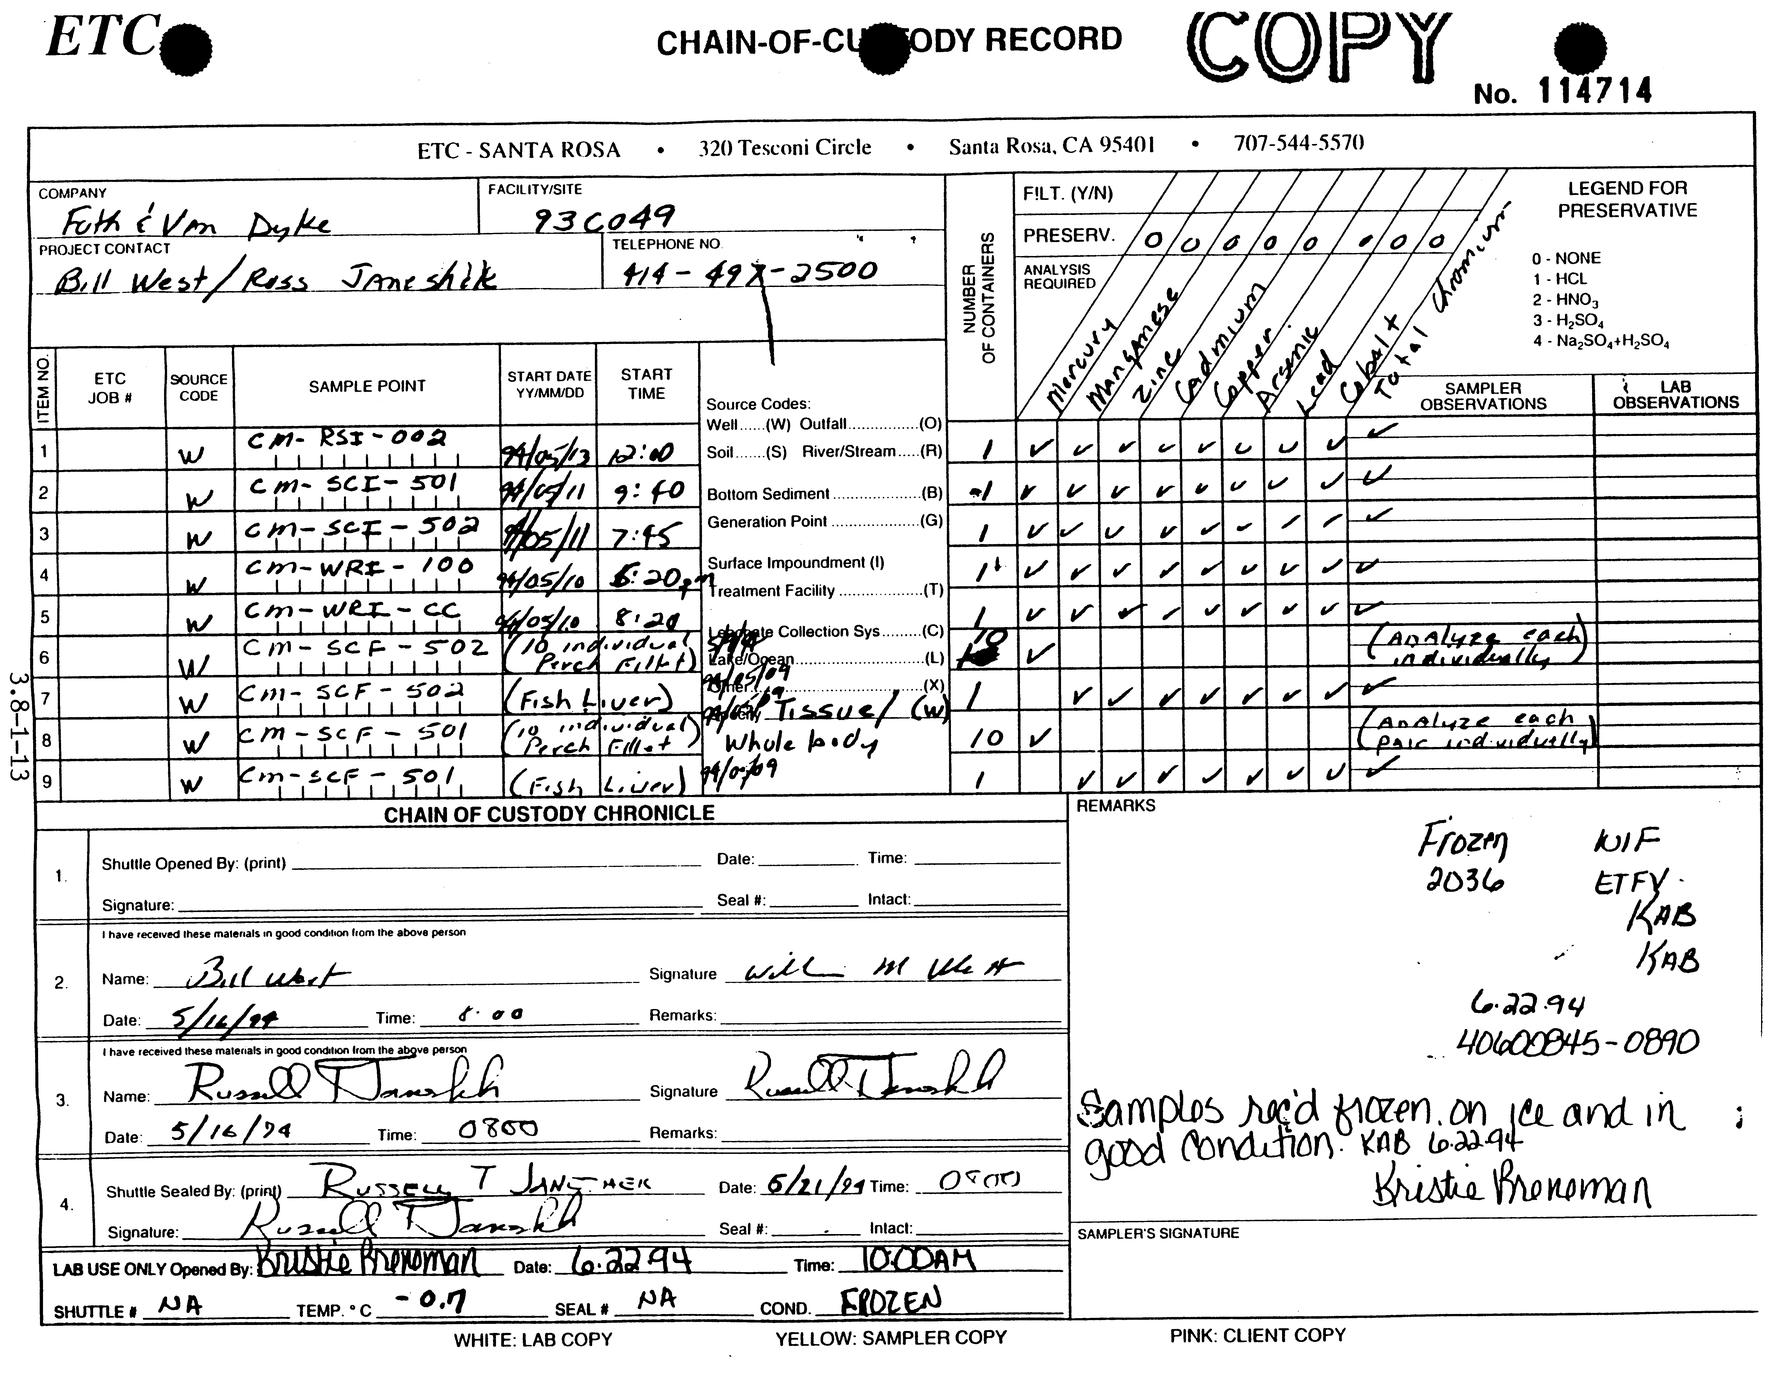 ETC
CHAIN-OF-CUSTODY RECORD
COPY
No. 114714
ETC - SANTA ROSA • 320 Tesconi Circle • Santa Rosa, CA 95401 • 707-544-5570
COMPANY
Foth & Van Dyke
FACILITY/SITE
93C049
PROJECT CONTACT
Bill West/Ross Janeshek
TELEPHONE NO.
414-497-2500
NUMBER OF CONTAINERS
FILT. (Y/N)
PRESERV. 0 0 0 0 0 0 0 0
ANALYSIS REQUIRED
Mercury
Manganese
Zinc
Cadmium
Copper
Arsenic
Lead
Cobalt
Total Chromium
LEGEND FOR PRESERVATIVE
0 - NONE
1 - HCL
2 - HNO3
3 - H2SO4
4 - Na2SO4+H2SO4
ITEM NO. ETC JOB # SOURCE CODE SAMPLE POINT START DATE YY/MM/DD START TIME
SAMPLER OBSERVATIONS
LAB OBSERVATIONS
Source Codes:
Well......(W) Outfall..............(O)
Soil......(S) River/Stream.....(R)
Bottom Sediment ..................(B)
Generation Point ..................(G)
Surface Impoundment (I)
Treatment Facility .................(T)
Leachate Collection Sys.........(C)
Lake/Ocean...........................(L)
Other...................................(X)
Specify Tissue/ (W)
Whole body
1 W CM-RSI-002 94/05/13 12:00 1 ✓ ✓ ✓ ✓ ✓ ✓ ✓ ✓ ✓
2 W CM-SCI-501 94/05/11 9:40 1 ✓ ✓ ✓ ✓ ✓ ✓ ✓ ✓ ✓
3 W CM-SCI-502 94/05/11 7:45 1 ✓ ✓ ✓ ✓ ✓ ✓ ✓ ✓ ✓
4 W CM-WRI-100 94/05/10 6:20pm 1 ✓ ✓ ✓ ✓ ✓ ✓ ✓ ✓ ✓
5 W CM-WRI-CC 94/05/10 8:20 1 ✓ ✓ ✓ ✓ ✓ ✓ ✓ ✓ ✓
6 W CM-SCF-502 (10 individual Perch Fillet) 10 ✓ (Analyze each individually)
7 W CM-SCF-502 (Fish Liver) 94/05/09 1 ✓ ✓ ✓ ✓ ✓ ✓ ✓ ✓
8 W CM-SCF-501 (10 individual Perch Fillet) 10 ✓ (Analyze each individually)
9 W CM-SCF-501 (Fish Liver) 94/05/09 1 ✓ ✓ ✓ ✓ ✓ ✓ ✓ ✓
3.8-1-13
CHAIN OF CUSTODY CHRONICLE
1. Shuttle Opened By: (print) Date: Time:
Signature: Seal #: Intact:
I have received these materials in good condition from the above person
2. Name: Bill West Signature William M West
Date: 5/16/94 Time: 8:00 Remarks:
I have received these materials in good condition from the above person
3. Name: Russell T Janeshek Signature Russell T Janeshek
Date: 5/16/94 Time: 0800 Remarks:
4. Shuttle Sealed By: (print) RUSSELL T JANESHEK Date: 6/21/94 Time: 0800
Signature: Russell T Janeshek Seal #: Intact:
LAB USE ONLY Opened By: Kristie Breneman Date: 6.22.94 Time: 10:00AM
SHUTTLE # NA TEMP. °C -0.7 SEAL # NA COND. FROZEN
REMARKS
Frozen WIF
2036 ETFV
KAB
KAB
6.22.94
40600845-0890
Samples rec'd frozen on ice and in
good condition. KAB 6.22.94
Kristie Breneman
SAMPLER'S SIGNATURE
WHITE: LAB COPY YELLOW: SAMPLER COPY PINK: CLIENT COPY